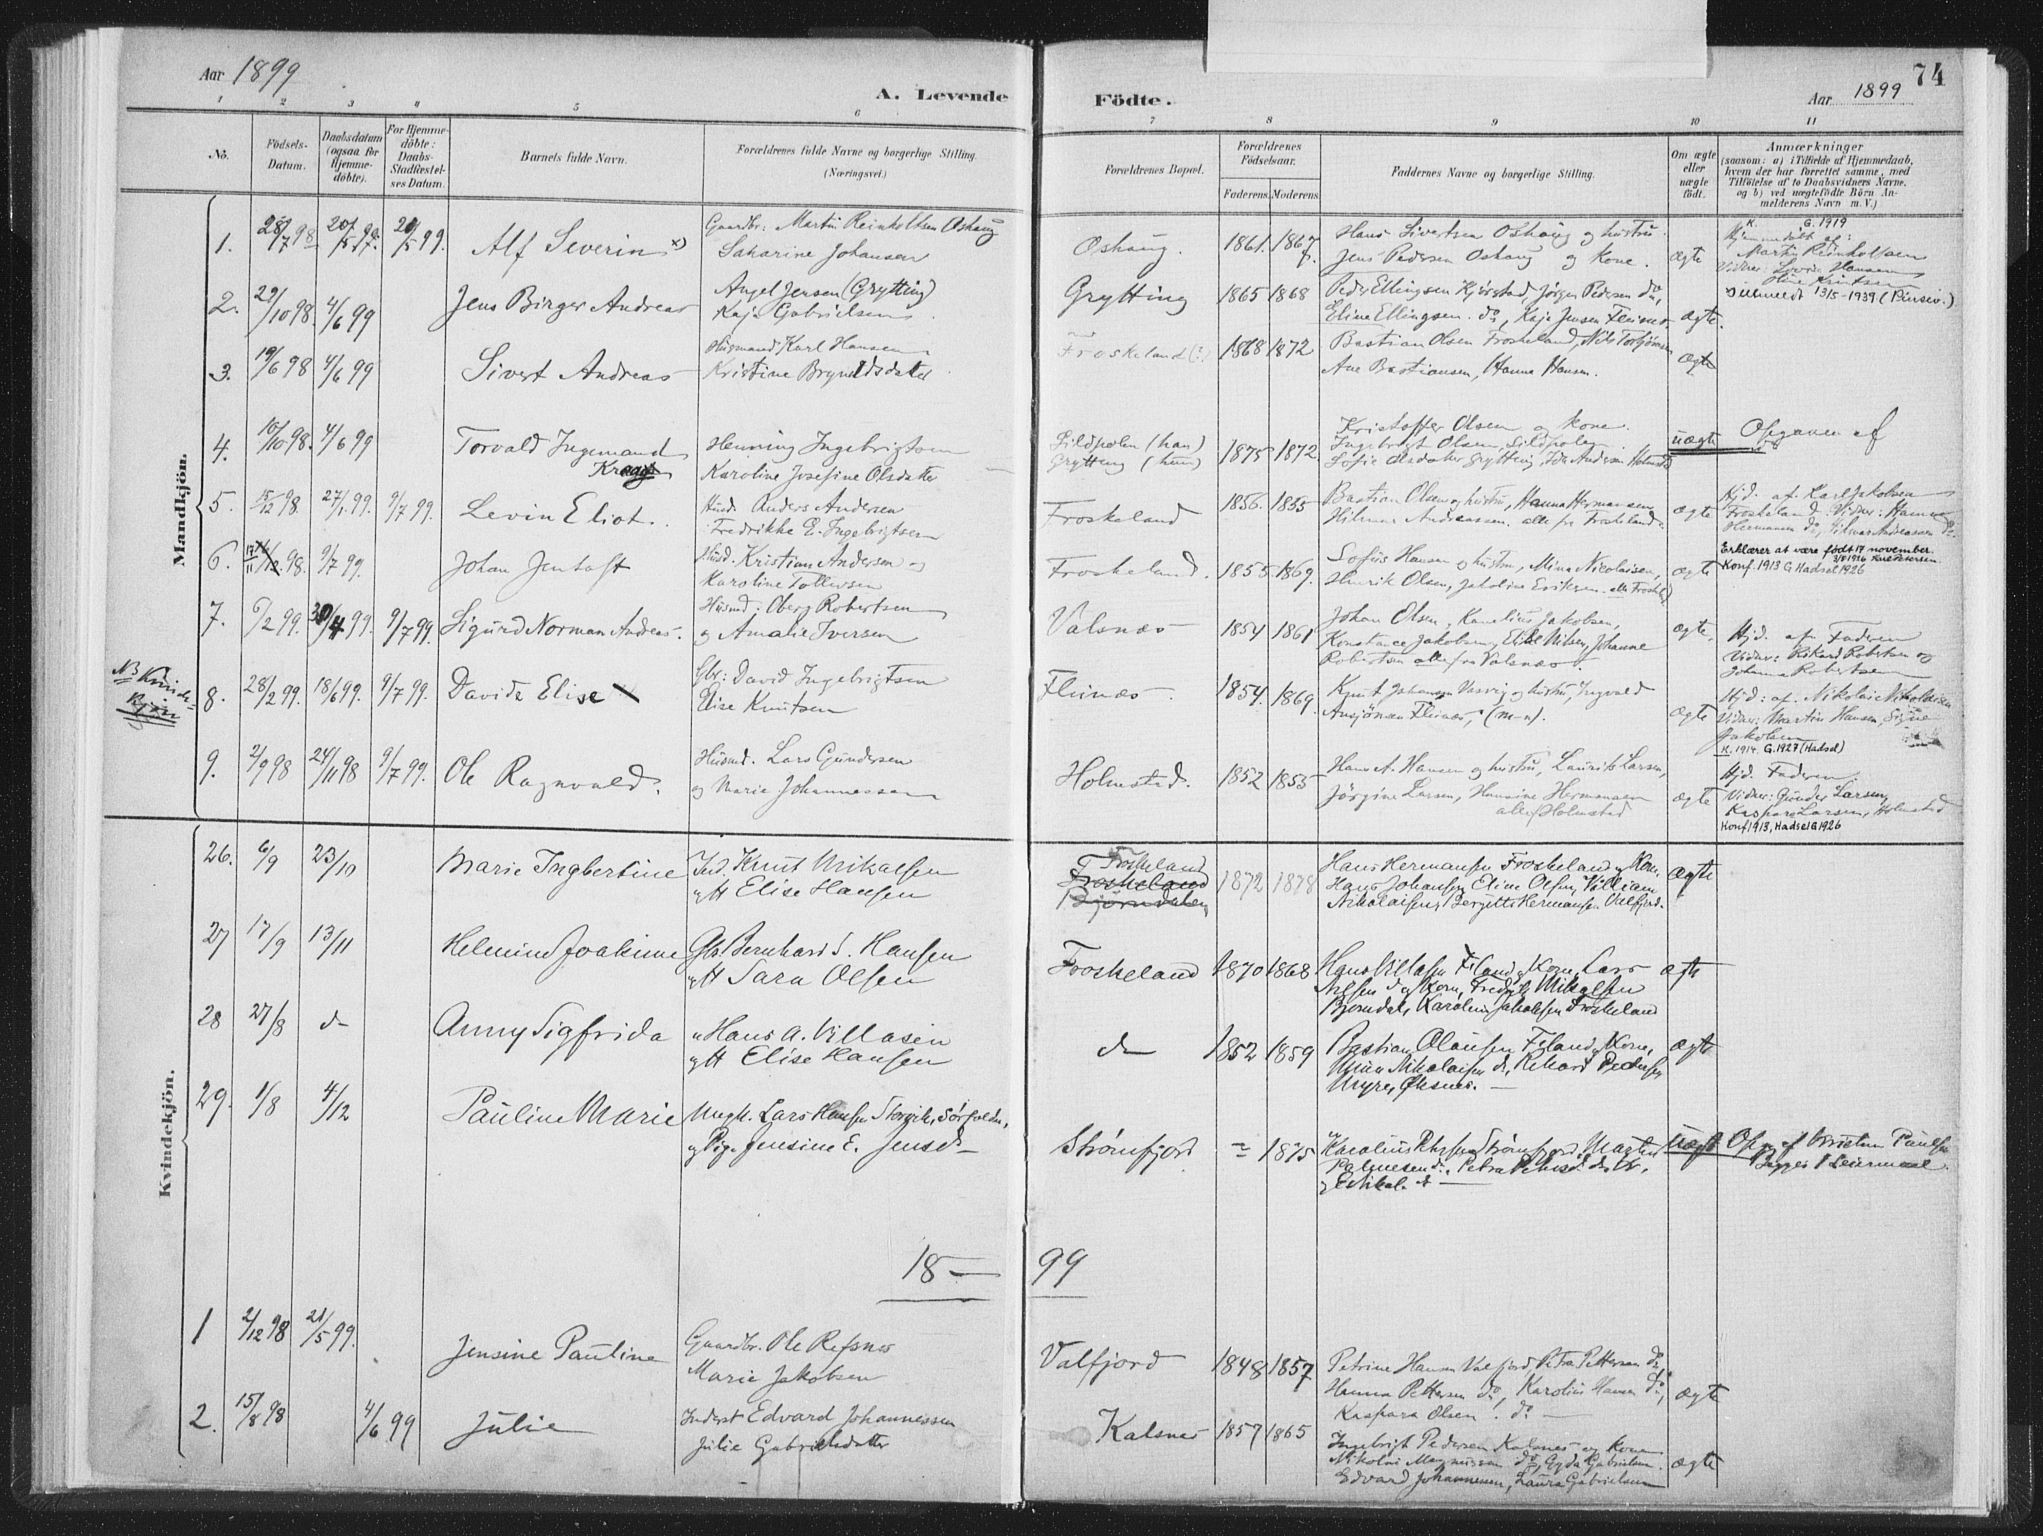 Aar 1899
A. Levende
Födte.
Aar 1899
74
1 2 3 4 5 6 7 8 9 10 11
No.
Födsels-
Datum.
Daabsdatum
(ogsaa for
Hjemme-
döbte).
For Hjemme-
döbte:
Daabs-
Stadfæstel-
ses Datum.
Barnets fulde Navn.
Forældrenes fulde Navne og borgerlige Stilling.
(Næringsvei.)
Forældrenes Bopæl.
Forældrenes
Födselsaar.
Faderens. Moderens.
Faddernes Navne og borgerlige Stilling.
Om ægte
eller
uægte
födt.
Anmærkninger
(saasom: a) i Tilfælde af Hjemmedaab,
hvem der har forrettet samme, med
Tilföielse af to Daabsvidners Navne,
og b) ved uægtefödte Börn An-
melderens Navn m. V.)
Mandkjön.
1. 28/7 98 20/5 99 Alf Severin x)
Gaardbr: Martin Reinholtsen Oshaug
Saharine Johansen
Oshaug. 1861. 1867
Hans Sivertsen Oshaug og hustru.
Jens Pedersen Oshaug og Kone. ægte
K. G. 1919
Hjemmedøbt af:
Martin Reinholtsen
2. 29/10 98. 4/6 99 Jens Birger Andreas
Angel Jensen (Grytting)
Kaja Gabrielsen
Grytting 1865 1868
Peder Ellingsen Kjørstad, Jørgen Pedersen do,
Eline Ellingsen do, Kaja Jensen Flesnes. ægte.
Udmeldt 13/5-1939 (Pinsev.)
3. 19/6 98 4/6 99 Sivert Andreas
Husmand Karl Hansen
Kristine Bryndsdatter
Froskeland (?) 1868 1872
Bastian Olsen Froskeland, Nils Torbjörnsen
Ane Bastiansen, Hanna Hansen. ægte
4. 10/10 98. 4/6 99 Torvald Ingemand
Henning Ingebrigtsen
Karoline Josefine Olsdatter
Sildpolen (han)
Grytting (hun) 1875 1872
Kristoffer Olsen og kone.
Ingebrigt Olsen, Sildpolen
uægte Opgaven af
5. 15/12 98. 27/1 99. 9/7 99. Levin Eliot.
Husd. Anders Andersen
Fredrikke E. Ingebrigtsen
Froskeland 1856. 1855
Bastian Olsen og hustru, Hanna Hermansen
Hilmar Andreassen. alle fra Froskeland. ægte
Hjd. af Karl Jakobsen
Froskeland. Vidner: Hanna
Hermansen do, Hilmar Andreassen do.
6. 17/11 98. 9/7 99. Johan Jentoft
Husd. Kristian Andersen og
Karoline Tollevsen
Froskeland. 1855. 1869.
Sofus Hansen og hustru, Mina Nicolaisen,
Henrik Olsen, Jakobine Eriksen. alle Froskeld. ægte
Erklærer at være født 17 november.
Konf. 1913 G Hadsel 1926
7. 6/2 99. 30/4 99. 9/7 99. Sigurd Norman Andreas.
Husmd: Oberg Robertsen
og Amalie Iversen
Valsnæs 1854 1861
Johan Olsen, Kornelius Jakobsen,
Konstance Jakobsen, Elise Nilsen, Johanne
Robertsen alle fra Valsnæs. ægte.
Hjd. af Faderen
Vidner: Rikard Robertsen og
Johanna Robertsen
NB Kvinde-
kjøn
8. 28/2 99. 18/6 99. 9/7 99. Davida Elise
Gbr: David Ingebrigtsen
Elise Knutsen
Flesnæs. 1854. 1869.
Knut Johansen Vasvig og hustru, Ingvald
Ansjönsen Flesnæs, (m-n). ægte
Hjd: af Nikolai Nikolaisen
Vidner: Martin Hansen, Signe
Jakobsen
K. 1914. G. 1927 (Hadsel)
9. 2/9 98 24/11 98 9/7 99. Ole Ragnvald.
Husmd. Lars Gundersen
og Marie Johannessen
Holmstad. 1852 1855
Hans A. Hansen og hustru, Laurits Larsen,
Jörgine Larsen, Hansine Hermansen
alle Holmstad ægte
Hjd. Faderen.
Vidner: Gunder Larsen,
Kaspara Larsen, Holmstad
Konf 1913, Hadsel G 1926
Kvindekjön.
26. 6/9 23/10 Marie Ingbertine
Ind. Knut Mikalsen
og H Elise Hansen
Froskeland
Froskeland
Bjørndalen 1872 1878
Hans Hermansen Froskeland og Kone,
Hans Johansen, Eline Olsen, Villiam
Nikolaisen, Bergitte Hermansen Valfjord. ægte
27 17/9 13/11 Helmine Joakime
Gbr Bernhard S. Hansen
og H Sara Olsen
Froskeland 1870 1868
Hans Villasen F.land og Kone, Lars
Nilsen do og Kone, Fredrik Mikalsen
Bjørndal, Karoline Jakobsen Froskeland ægte
28 27/8 do Anny Sigfrida
" Hans A. Villasen
og H Elise Hansen
do 1852 1859
Bastian Olausen F.land og Kone,
Mina Nikolaisen do, Rikard Pedersen
Myre, Øksnes. — ægte
29. 1/8 4/12 Pauline Marie
Ungk. Lars Hansen Storvik, Sørfolden,
og Pige Jensine E. Jensd. —
Strømfjord 1875
uægte
18—99
1 2/12 98 21/5 99. Jensine Pauline
Gaardbr. Ole Refsnes
Marie Jakobsen
Valfjord 1848 1857
Petrine Hansen Valfjord, Petra Pettersen do
Hanna Pettersen do, Karolius Hansen do,
Kaspara Olsen. do — ægte
2. 15/8 98 4/6 99 Julie
Inderst Edvard Johannessen
Julie Gabrielsdatter
Kalsnes 1857 1865
Ingebrigt Pedersen Kalsnes og kone
Nikolai Magnussen do, Gyda Gabrielsen
Edvard Johannesen, Laura Gabrielsen ægte